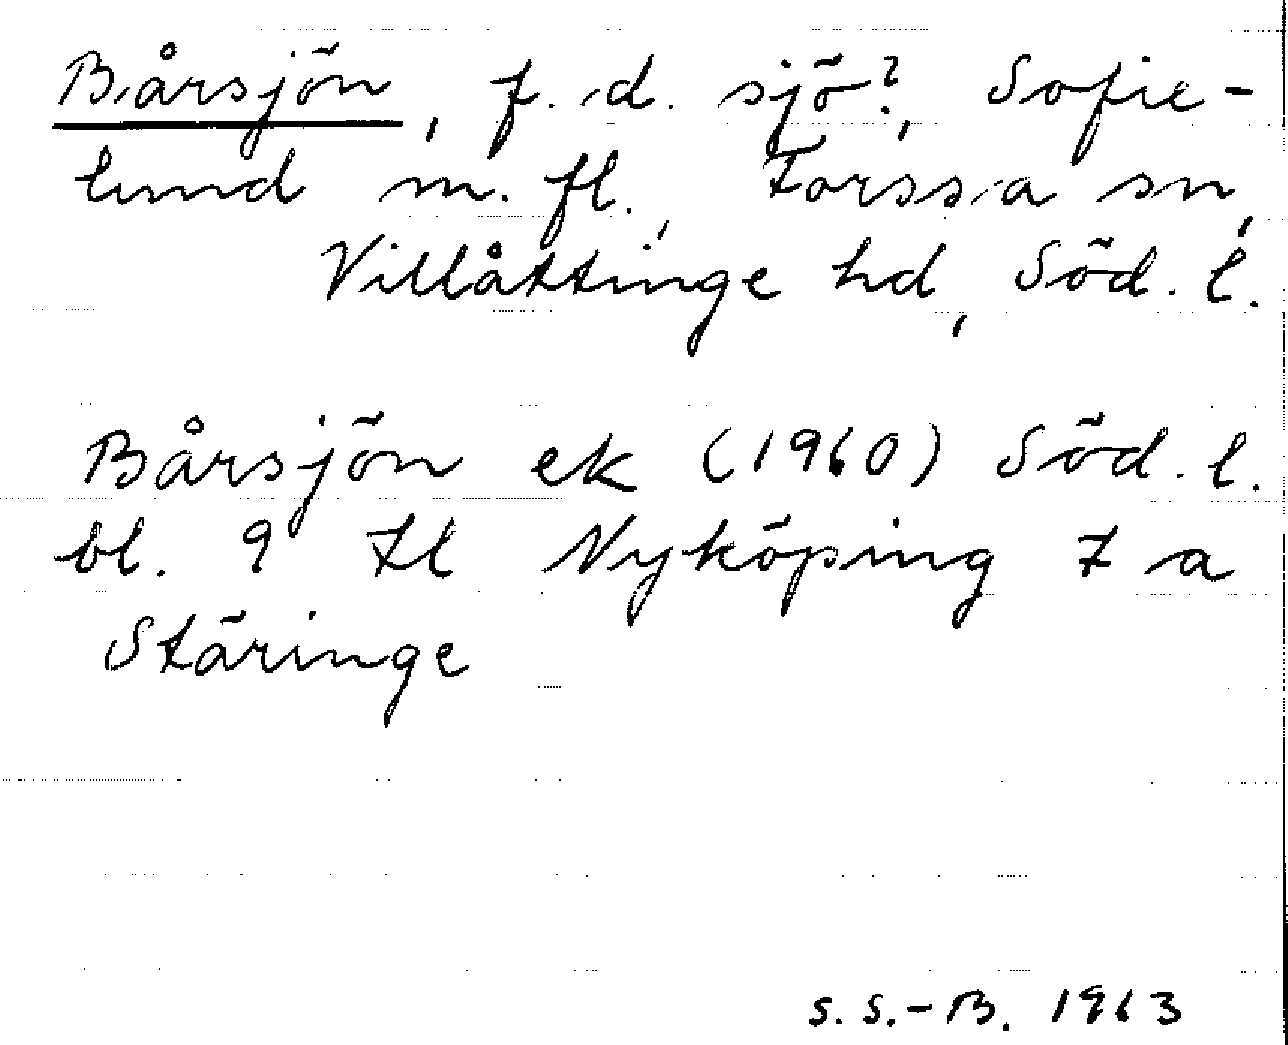 Bårsjön, f. d. sjö?, Sofie-
lund m. fl., Forssa sn,
Villåttinge hd, Söd. l.
Bårsjön ek (1960) Söd. l.
bl. 9 Il Nyköping 7 a
Stäringe
S. S.-B. 1963